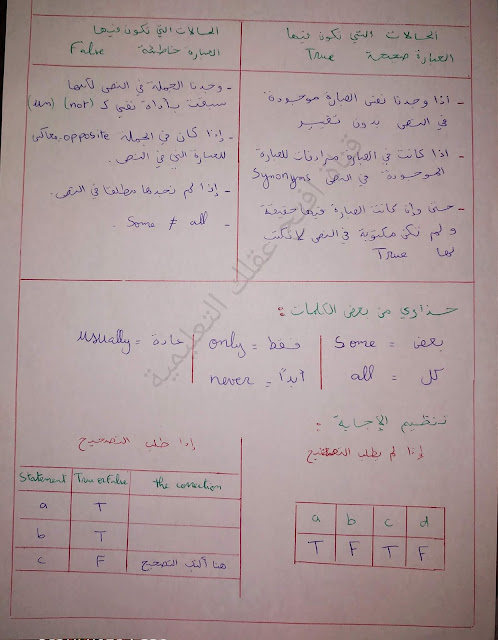 الحالات التي تكون فيها
العبارة صحيحة True
- اذا وجدنا نفس العبارة موجودة
في النص بدون تغيير
- اذا كانت في العبارة مترادفات للعبارة
الموجودة في النص Synonyms
- حتى وإن كانت العبارة فيها حقيقة
و لم تكن مكتوبة في النص لا نكتب
لها True
الحالات التي تكون فيها
العبارة خاطئة False
- وجدنا الجملة في النص لكنها
سبقت بأداة نفي كـ (not) (un)
- إذا كان في الجملة opposite
للعبارة التي في النص.
- إذا لم نجدها مطلقا في النص.
- Some ≠ all
حذاري من بعض الكلمات :
بعض = Some
فقط = only
عادة = usually
كل = all
أبدًا = never
تنظيم الإجابة :
إذا لم يطلب التصحيح
a b c d
T F T F
إذا طلب التصحيح
Statement True or False the correction
a T
b T
c F هنا أكتب التصحيح
فتيحة افتح عقلك التعليمية